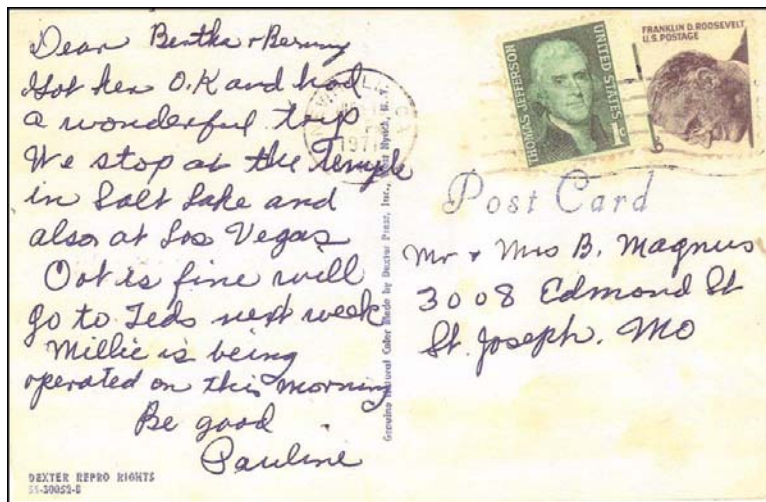 Dear Bertha & Benny
Got her O.K and had
a wonderful trip
We stop at the Temple
in Salt Lake and
also at Los Vegas
Oot is fine will
go to Teds next week
Millie is being
operated on this morning
Be good
Pauline
DEXTER REPRO RIGHTS
55-30052-B
Genuine Natural Color Made by Dexter Press, Inc., West Nyack, N. Y.
CA
197
THOMAS JEFFERSON
UNITED STATES
1c
FRANKLIN D. ROOSEVELT
U.S. POSTAGE
6
Post Card
Mr & Mrs B. Magnus
3008 Edmond St
St. Joseph. MO